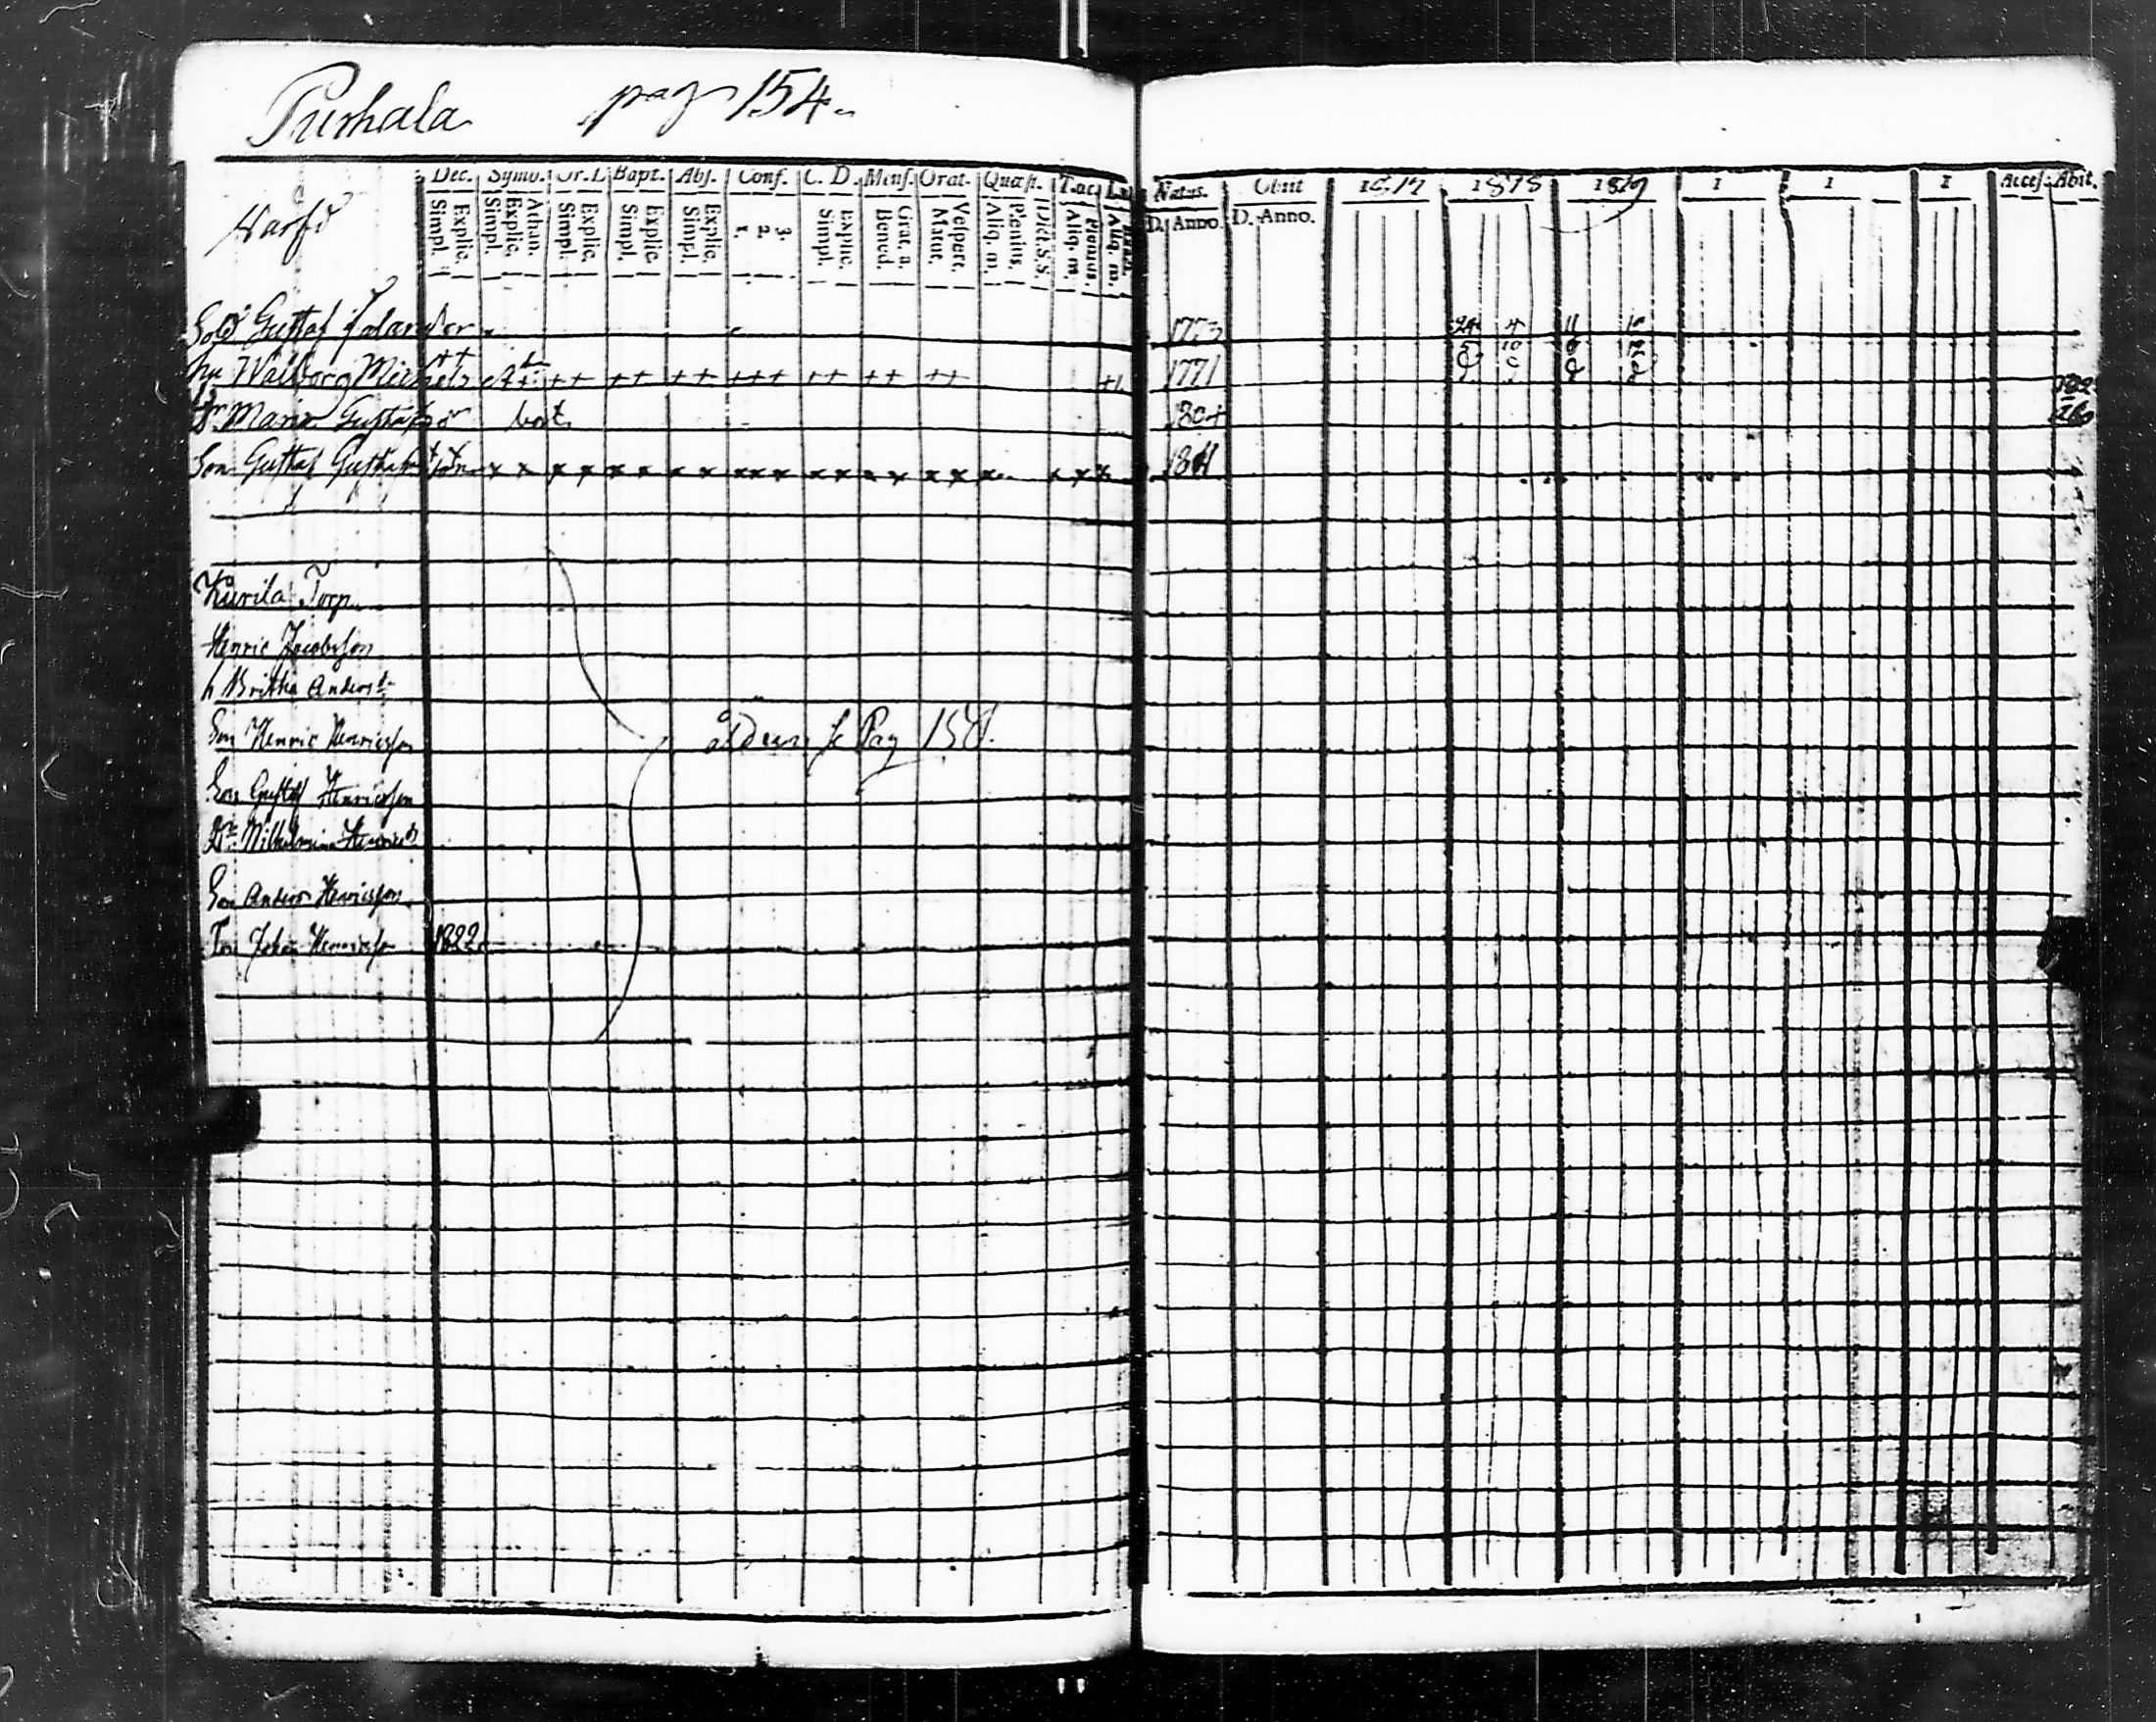 Purhala pag 154.
Dec. Symb. Or. D Bapt. Abs. Conf. C. D. Mens. Orat. Quæst. T. ac Natus. Obiit 1817 1818 1819 1 1 1 Acces. Abit.
Simpl. Explic. Simpl. Explic. Athan. Simpl. Explic. Simpl. Explic. Simpl. Explic. 1. 2. 3. Simpl. Explic. Bened. Grat. a. Matut. Vespert. Aliq. m. Plenius. Dict. S. S. Aliq. m. Plenius. Aliq. m. D. Anno. D. Anno.
Sold Gustaf 1773 24 4 11
hu Walborg Michels ++ ++ ++ +++ ++ ++ ++ 1771
Dr Maria Gustafsdr bort 1804
Son Gustaf Gustafsson x x x x x x x x x x x x x x x x x x 1811
Kurila Torp
Henric Jacobsson
h Britha Andersdr
Son Henric Henricsson
Pag
Son Gustaf Henricsson
Dr Wilhelmina Henricsdr
Son Anders Henricsson
Son Johan Henricsson 1822